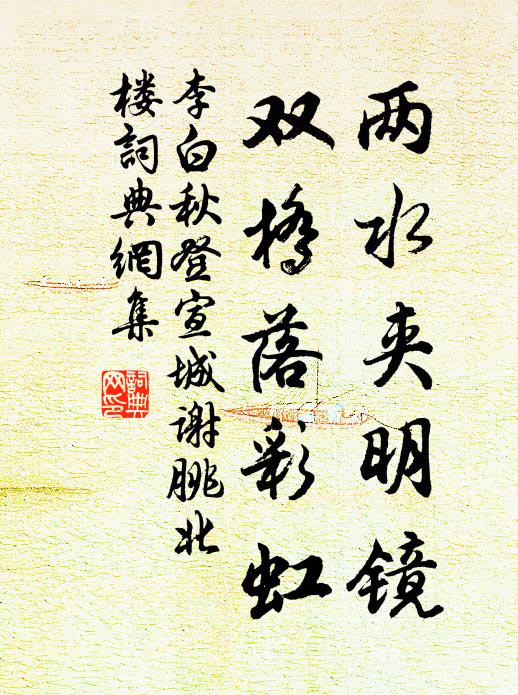 两水夹明镜
双桥落彩虹
李白秋登宣城谢脁北
楼词典網集
詞典
网印